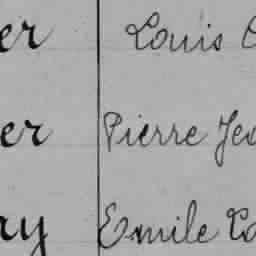 er Louis
er Pierre Jea
ry Emile